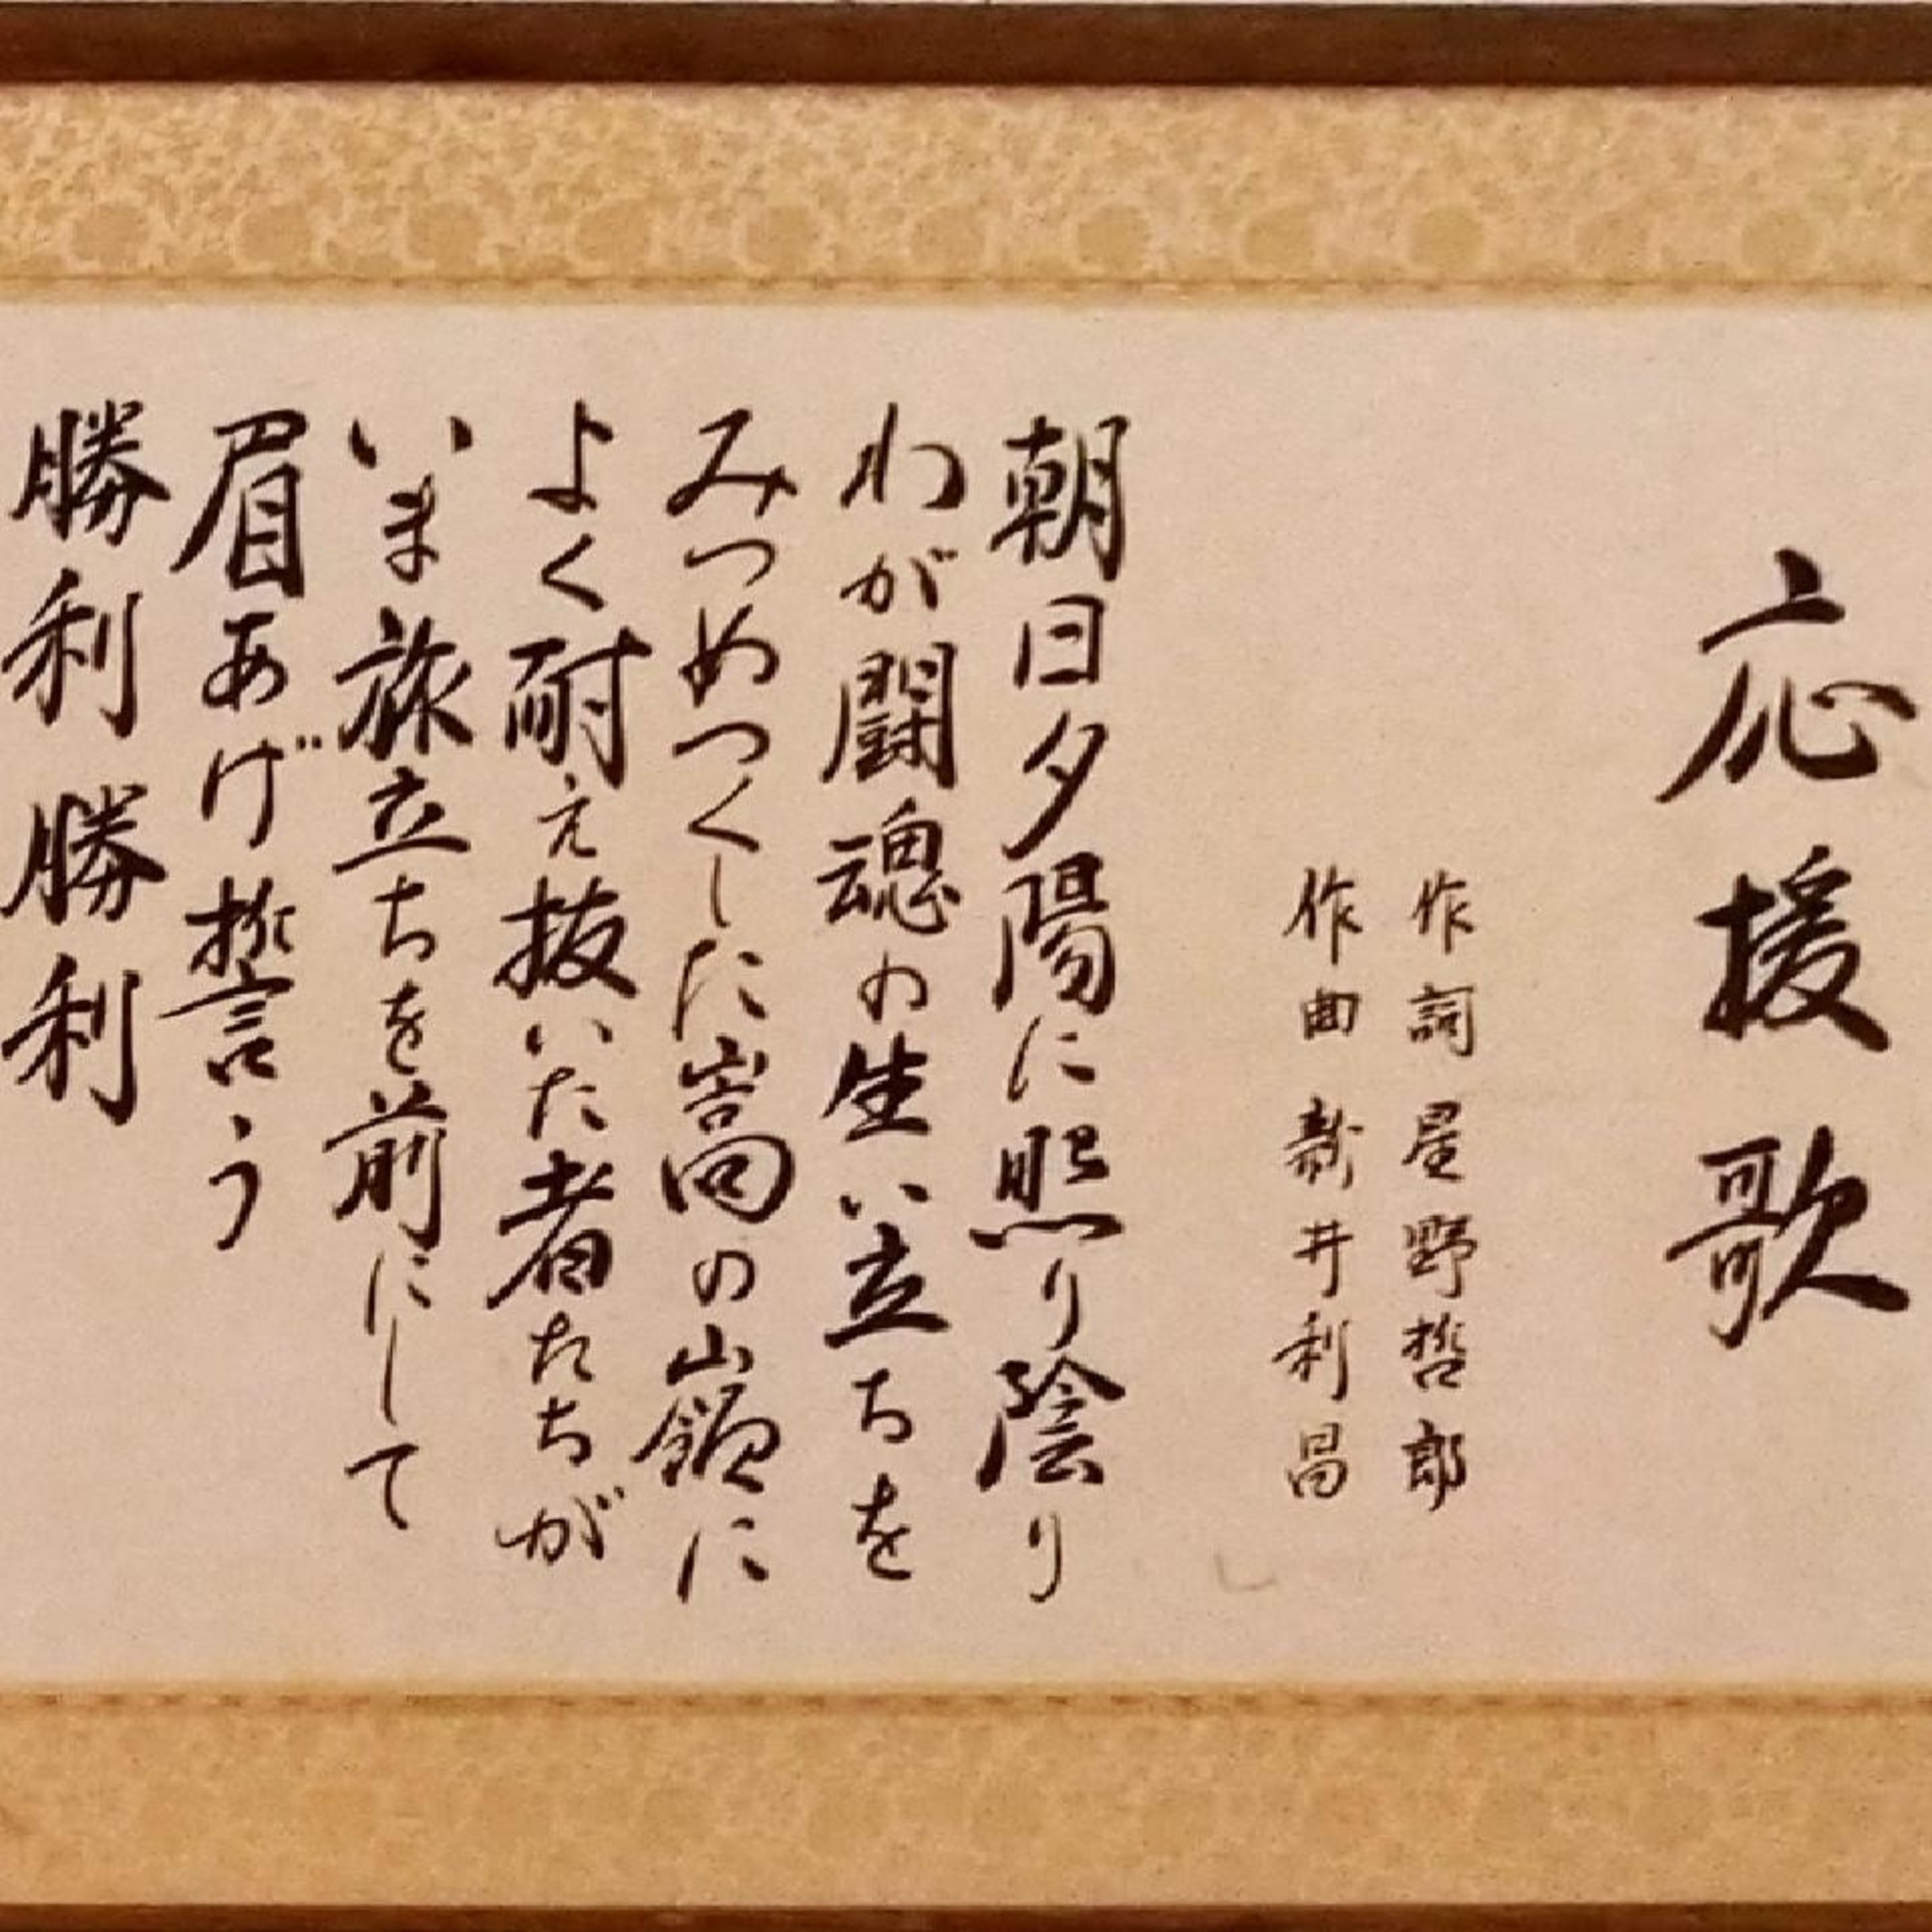 応援歌
作詞 星野哲郎
作曲 新井利昌
朝日夕陽に照り陰り
わが闘魂の生い立ちを
みつめつくした嵩の山嶺に
よく耐え抜いた者たちが
いま旅立ちを前にして
眉あげ誓う
勝利勝利